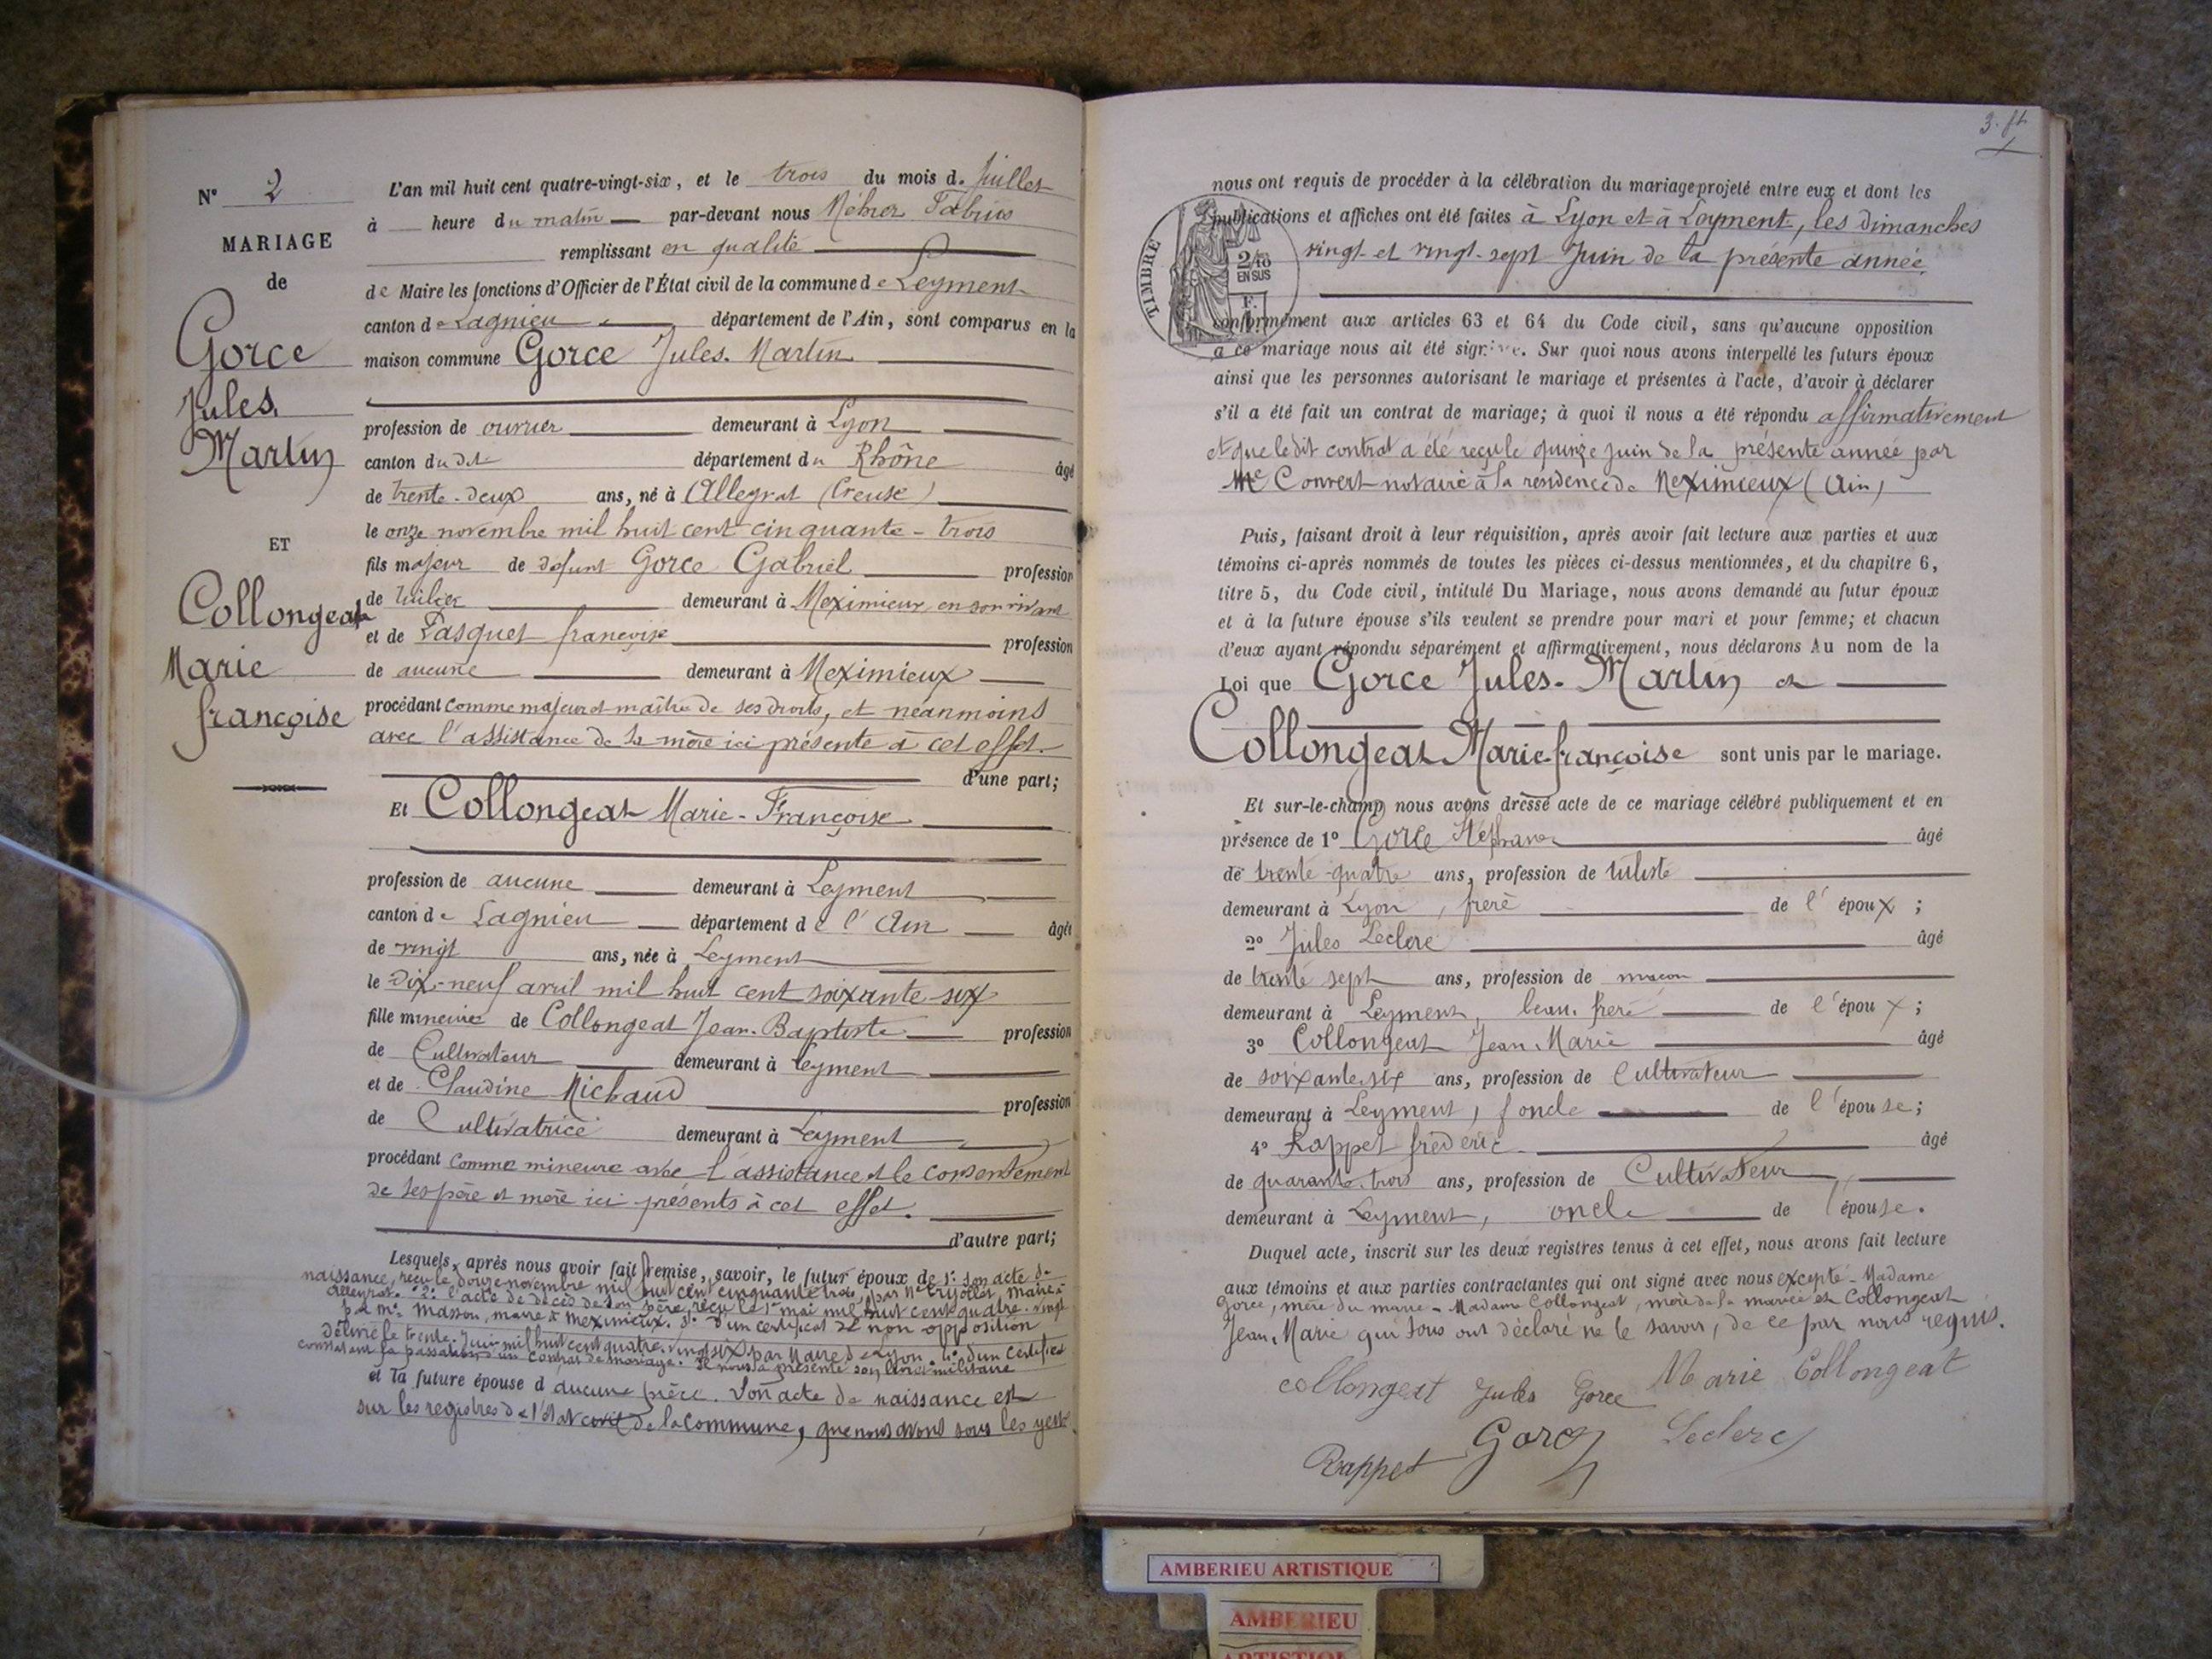 N° 2
MARIAGE
de
Gorce
Jules
Martin
ET
Collongeat
Marie
françoise
L'an mil huit cent quatre-vingt-six, et le trois du mois de Juillet
à heure du matin par-devant nous
remplissant en qualité
de Maire les fonctions d'Officier de l'État civil de la commune de Leyment
canton de Lagnieu département de l'Ain, sont comparus en la
maison commune Gorce Jules-Martin
profession de ouvrier demeurant à Lyon
canton du dit département du Rhône âgé
de trente-deux ans, né à Alleyrat (Creuse)
le onze novembre mil huit cent cinquante-trois
fils majeur de défunt Gorce Gabriel profession
de tuilier demeurant à Meximieux en son vivant
et de Pasquet françoise profession
de aucune demeurant à Meximieux
procédant comme majeur et maître de ses droits, et néanmoins
avec l'assistance de sa mère ici présente à cet effet.
d'une part;
Et Collongeat Marie-Françoise
profession de aucune demeurant à Leyment
canton de Lagnieu département de l'Ain âgée
de vingt ans, née à Leyment
le dix-neuf avril mil huit cent soixante-six
fille mineure de Collongeat Jean-Baptiste profession
de Cultivateur demeurant à Leyment
et de Claudine Michaud profession
de Cultivatrice demeurant à Leyment
procédant comme mineure avec l'assistance et le consentement
de ses père et mère ici présents à cet effet.
d'autre part;
Lesquels, après nous avoir fait remise, savoir, le futur époux de 1° son acte de
naissance, reçu le douze novembre mil huit cent cinquante trois, par Mr maire à
Alleyrat. 2° l'acte de décès de son père, reçu le 1er mai mil huit cent quatre-vingt
par Mr Masson, maire à Meximieux. 3° d'un certificat de non opposition
délivré le trente Juin mil huit cent quatre-vingt six par Maire de Lyon. 4° d'un certificat
constatant la passation d'un contrat de mariage. Il nous a présenté son livret militaire
et la future épouse d'aucune pièce. Son acte de naissance est
sur les registres de l'état civil de la commune, que nous avons sous les yeux
3. ft
TIMBRE
2/10
EN SUS
F.
nous ont requis de procéder à la célébration du mariage projeté entre eux et dont les
publications et affiches ont été faites à Lyon et à Leyment, les dimanches
vingt et vingt-sept Juin de la présente année,
conformément aux articles 63 et 64 du Code civil, sans qu'aucune opposition
à ce mariage nous ait été signifiée. Sur quoi nous avons interpellé les futurs époux
ainsi que les personnes autorisant le mariage et présentes à l'acte, d'avoir à déclarer
s'il a été fait un contrat de mariage; à quoi il nous a été répondu affirmativement
et que ledit contrat a été reçu le quinze Juin de la présente année par
Me Convert notaire à la résidence de Meximieux (Ain)
Puis, faisant droit à leur réquisition, après avoir fait lecture aux parties et aux
témoins ci-après nommés de toutes les pièces ci-dessus mentionnées, et du chapitre 6,
titre 5, du Code civil, intitulé Du Mariage, nous avons demandé au futur époux
et à la future épouse s'ils veulent se prendre pour mari et pour femme; et chacun
d'eux ayant répondu séparément et affirmativement, nous déclarons Au nom de la
Loi que Gorce Jules-Martin et
Collongeat Marie-françoise sont unis par le mariage.
Et sur-le-champ nous avons dressé acte de ce mariage célébré publiquement et en
présence de 1° Gorce âgé
de trente-quatre ans, profession de tuiliste
demeurant à Lyon, frère de l'époux;
2° Jules Leclerc âgé
de trente sept ans, profession de maçon
demeurant à Leyment, beau-frère de l'époux;
3° Collongeat Jean Marie âgé
de soixante-six ans, profession de Cultivateur
demeurant à Leyment, oncle de l'épouse;
4° Rappet frédéric âgé
de quarante-trois ans, profession de Cultivateur
demeurant à Leyment, oncle de l'épouse.
Duquel acte, inscrit sur les deux registres tenus à cet effet, nous avons fait lecture
aux témoins et aux parties contractantes qui ont signé avec nous excepté Madame
Gorce, mère du marié Madame Collongeat, mère de la mariée et Collongeat
Jean Marie qui tous ont déclaré ne le savoir, de ce par nous requis.
collongeat Jules Gorce Marie Collongeat
Rappet Gorce Leclerc
AMBERIEU ARTISTIQUE
AMBERIEU
ARTISTIQUE